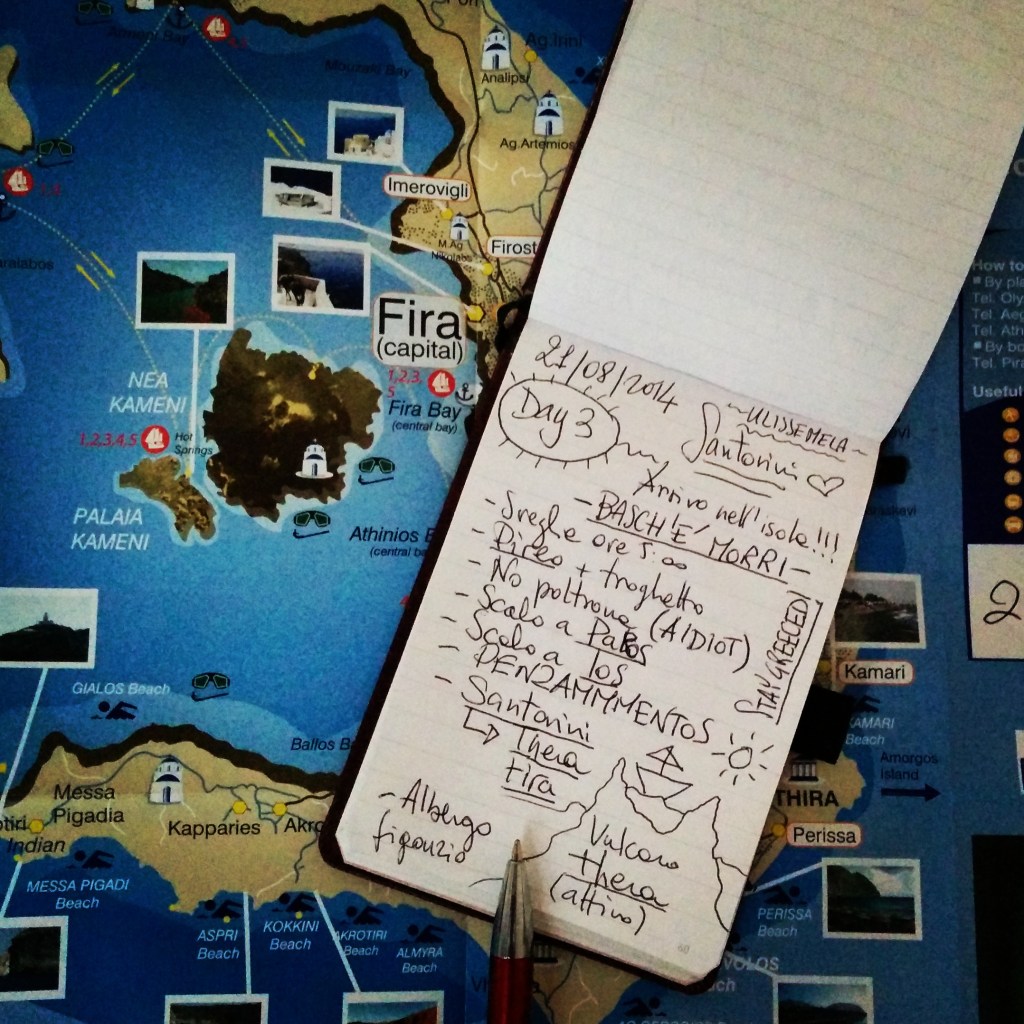 Ag.Irini
Mouzaki Bay
Analipsi
Ag.Artemios
Imerovigli
M.Ag
Nikolaos
Firost
Fira
(capital)
NEA
KAMENI
1,2,3,
5
Fira Bay
(central bay)
1,2,3,4,5
Hot
Springs
PALAIA
KAMENI
Athinios B
(central ba
GIALOS Beach
Ballos B
Messa
Pigadia
Kapparies
Akro
Indian
MESSA PIGADI
Beach
ASPRI
Beach
KOKKINI
Beach
AKROTIRI
Beach
ALMYRA
Beach
21/08/2014
~ULISSEMELA~
Day 3
Santorini ♡
Arrivo nell'isola!!!
- BASCH'E' MORRI -
- Sveglia ore 5:00
- Pireo + traghetto
- No poltrona (AIDIOT)
- Scalo a Paros
- Scalo a Ios
- PENJAMMMENTOS
- Santorini
↳ Thera
Fira
STAY GREECED!
- Albergo
figonzio
Vulcano
thera
(attivo)
60
How to
By pla
Tel. Oly
Tel. Aeg
Tel. Ath
By bo
Tel. Pira
Useful
2
Kamari
KAMARI
Beach
Amorgos
Island
THIRA
Perissa
PERISSA
Beach
VOLOS